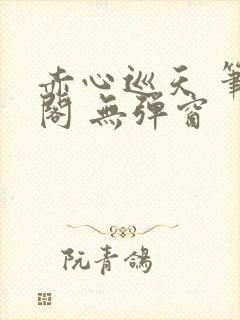 赤心巡天 筆
閣 無彈窗
阮青鴿